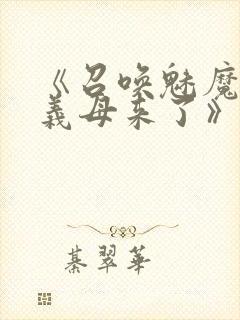 《召唤魅魔
義母来了》
綦翠華